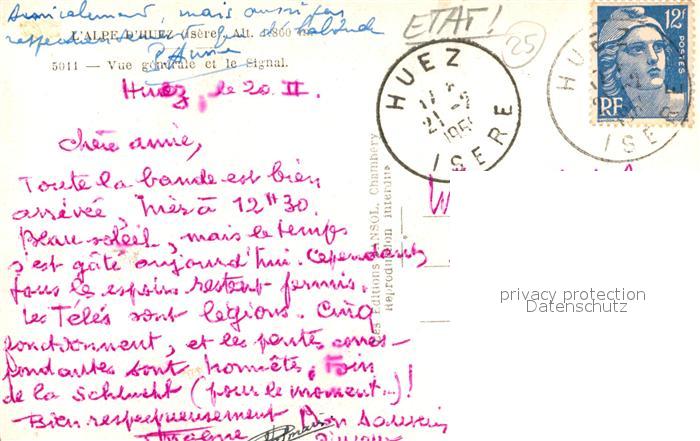 Amicalement, mais aussi pas
L'ALPE D'HUEZ (Isère) Alt. 1860 m.
5011 — Vue générale et le Signal.
ETAT!
25
12F
POSTES
RF
HUEZ
21-2
1951
ISERE
HUEZ
ISERE
Huez, le 20 II.
Chère annie,
Toute la bande est bien
arrivée, hier à 12H30.
Beau soleil, mais le temps
s'est gâté aujourd'hui. Cependant
tous le espoirs restent permis.
Les Télés sont légions. Cinq
fonctionnent, et les pentes corres-
pondantes sont honnêtes, loin
de la Schlucht (pour le moment...)!
Bien respectueusement
Les Editions JANSOL, Chambéry
Reproduction interdite
privacy protection
Datenschutz